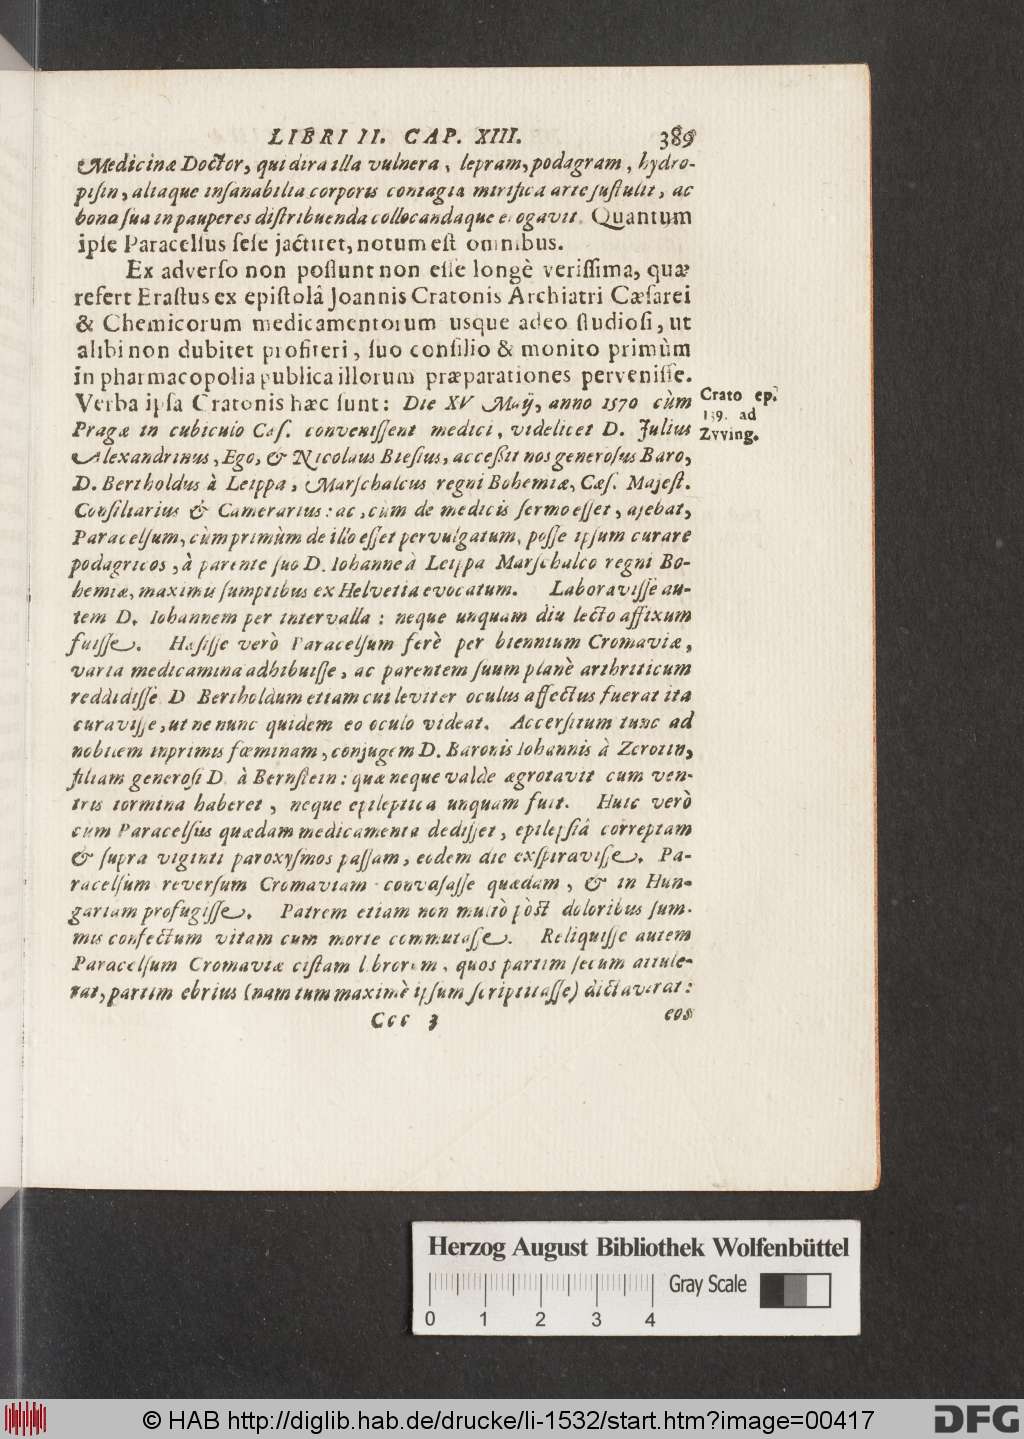 LIBRI II. CAP. XIII. 389
Medicinæ Doctor, qui dira illa vulnera, lepram, podagram, hydro-
pisin, aliaque insanabilia corporis contagia mirifica arte sustulit, ac
bona sua in pauperes distribuenda collocandaque erogavit. Quantum
ipse Paracelsus sese jactitet, notum est omnibus.
Ex adverso non possunt non esse longè verissima, quæ
refert Erastus ex epistolâ Joannis Cratonis Archiatri Cæsarei
& Chemicorum medicamentorum usque adeo studiosi, ut
alibi non dubitet profiteri, suo consilio & monito primùm
in pharmacopolia publica illorum præparationes pervenisse.
Verba ipsa Cratonis hæc sunt: Die XV Maij, anno 1570 cùm
Pragæ in cubiculo Cæs. convenissent medici, videlicet D. Julius
Alexandrinus, Ego, & Nicolaus Biesius, accessit nos generosus Baro,
D. Bertholdus à Leippa, Marschalcus regni Bohemiæ, Cæs. Majest.
Consiliarius & Camerarius: ac, cùm de medicis sermo esset, ajebat,
Paracelsum, cùm primùm de illo esset pervulgatum, posse ipsum curare
podagricos, à parente suo D. Iohanne à Leippa Marschalco regni Bo-
hemiæ, maximis sumptibus ex Helvetia evocatum. Laboravisse au-
tem D. Iohannem per intervalla: neque unquam diu lecto affixum
fuisse. Hæsisse verò Paracelsum ferè per biennium Cromaviæ,
varia medicamina adhibuisse, ac parentem suum planè arthriticum
reddidisse. D. Bertholdum etiam cui leviter oculus affectus fuerat ita
curavisse, ut ne nunc quidem eo oculo videat. Accersitum tunc ad
nobilem inprimis fœminam, conjugem D. Baronis Iohannis à Zerotin,
filiam generosi D. à Bernstein: quæ neque valde ægrotavit cum ven-
tris tormina haberet, neque epileptica unquam fuit. Huic verò
cum Paracelsus quædam medicamenta dedisset, epilepsiâ correptam
& supra viginti paroxysmos passam, eodem die exspiravisse. Pa-
racelsum reversum Cromaviam convasasse quædam, & in Hun-
gariam profugisse. Patrem etiam non multò pòst doloribus sum-
mis confectum vitam cum morte commutasse. Reliquisse autem
Paracelsum Cromaviæ cistam librorum, quos partim secum attule-
rat, partim ebrius (nam tum maximè ipsum scriptitasse) dictaverat:
Ccc 3 eos
Crato ep.
139. ad
Zvving.
Herzog August Bibliothek Wolfenbüttel
Gray Scale
0 1 2 3 4
© HAB http://diglib.hab.de/drucke/li-1532/start.htm?image=00417
DFG